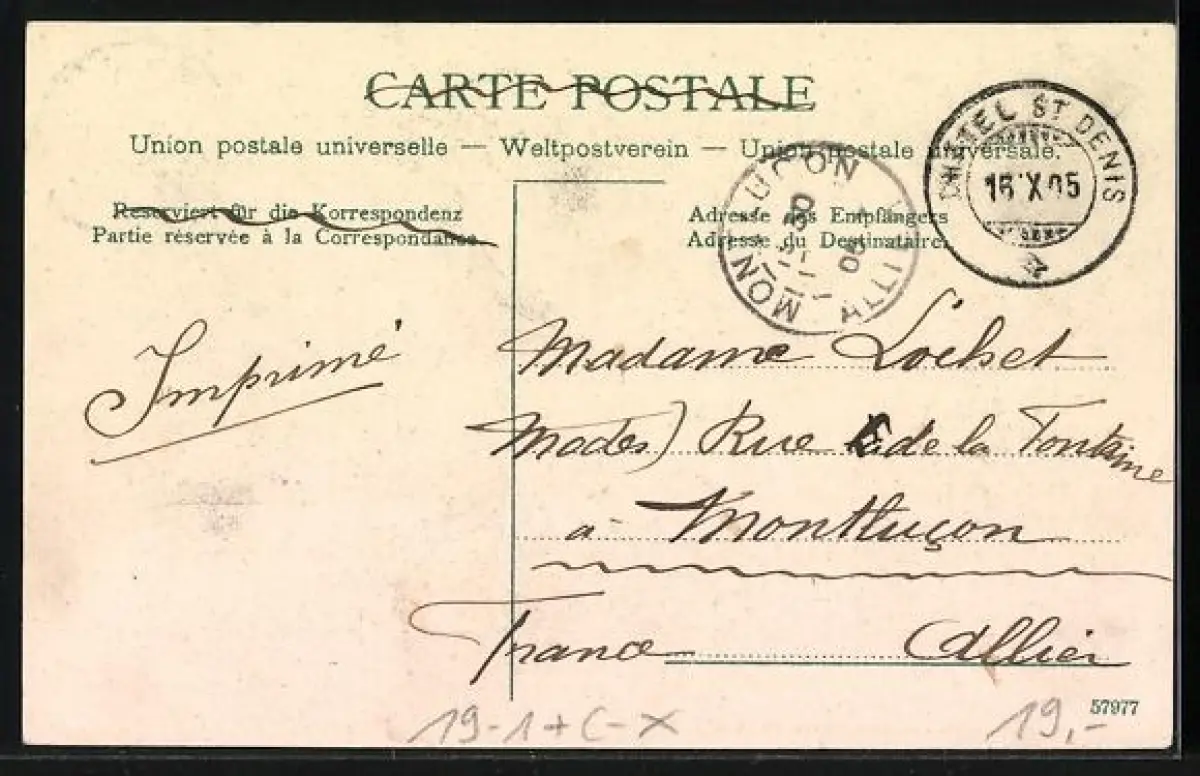 CARTE POSTALE
Union postale universelle — Weltpostverein — Union postale universale.
CHATEL ST DENIS
16 X 05
MONTLUÇON
ALLIER
05
Reserviert für die Korrespondenz
Partie réservée à la Correspondance.
Adresse des Empfängers
Adresse du Destinataire.
Imprimé
Madame
Modes) Rue de la Fontaine
à Montluçon
France Allier
57977
19-1+C-X
19,-